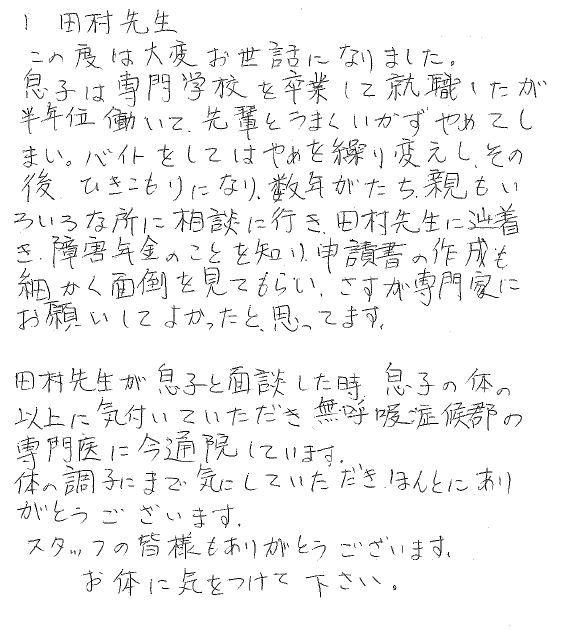 1 田村先生
この度は大変お世話になりました。
息子は専門学校を卒業して就職したが
半年位働いて、先輩とうまくいかずやめてし
まい。バイトをしてはやめを繰り変えし、その
後 ひきこもりになり、数年がたち、親もい
ろいろな所に相談に行き、田村先生に辿着
き、障害年金のことを知り、申請書の作成も
細かく面倒を見てもらい、さすが専門家に
お願いしてよかったと、思ってます。
田村先生が息子と面談した時、息子の体の
以上に気付いていただき 無呼吸症候郡の
専門医に今通院しています。
体の調子にまで気にしていただき、ほんとにあり
がとうございます。
スタッフの皆様もありがとうございます。
お体に気をつけて下さい。